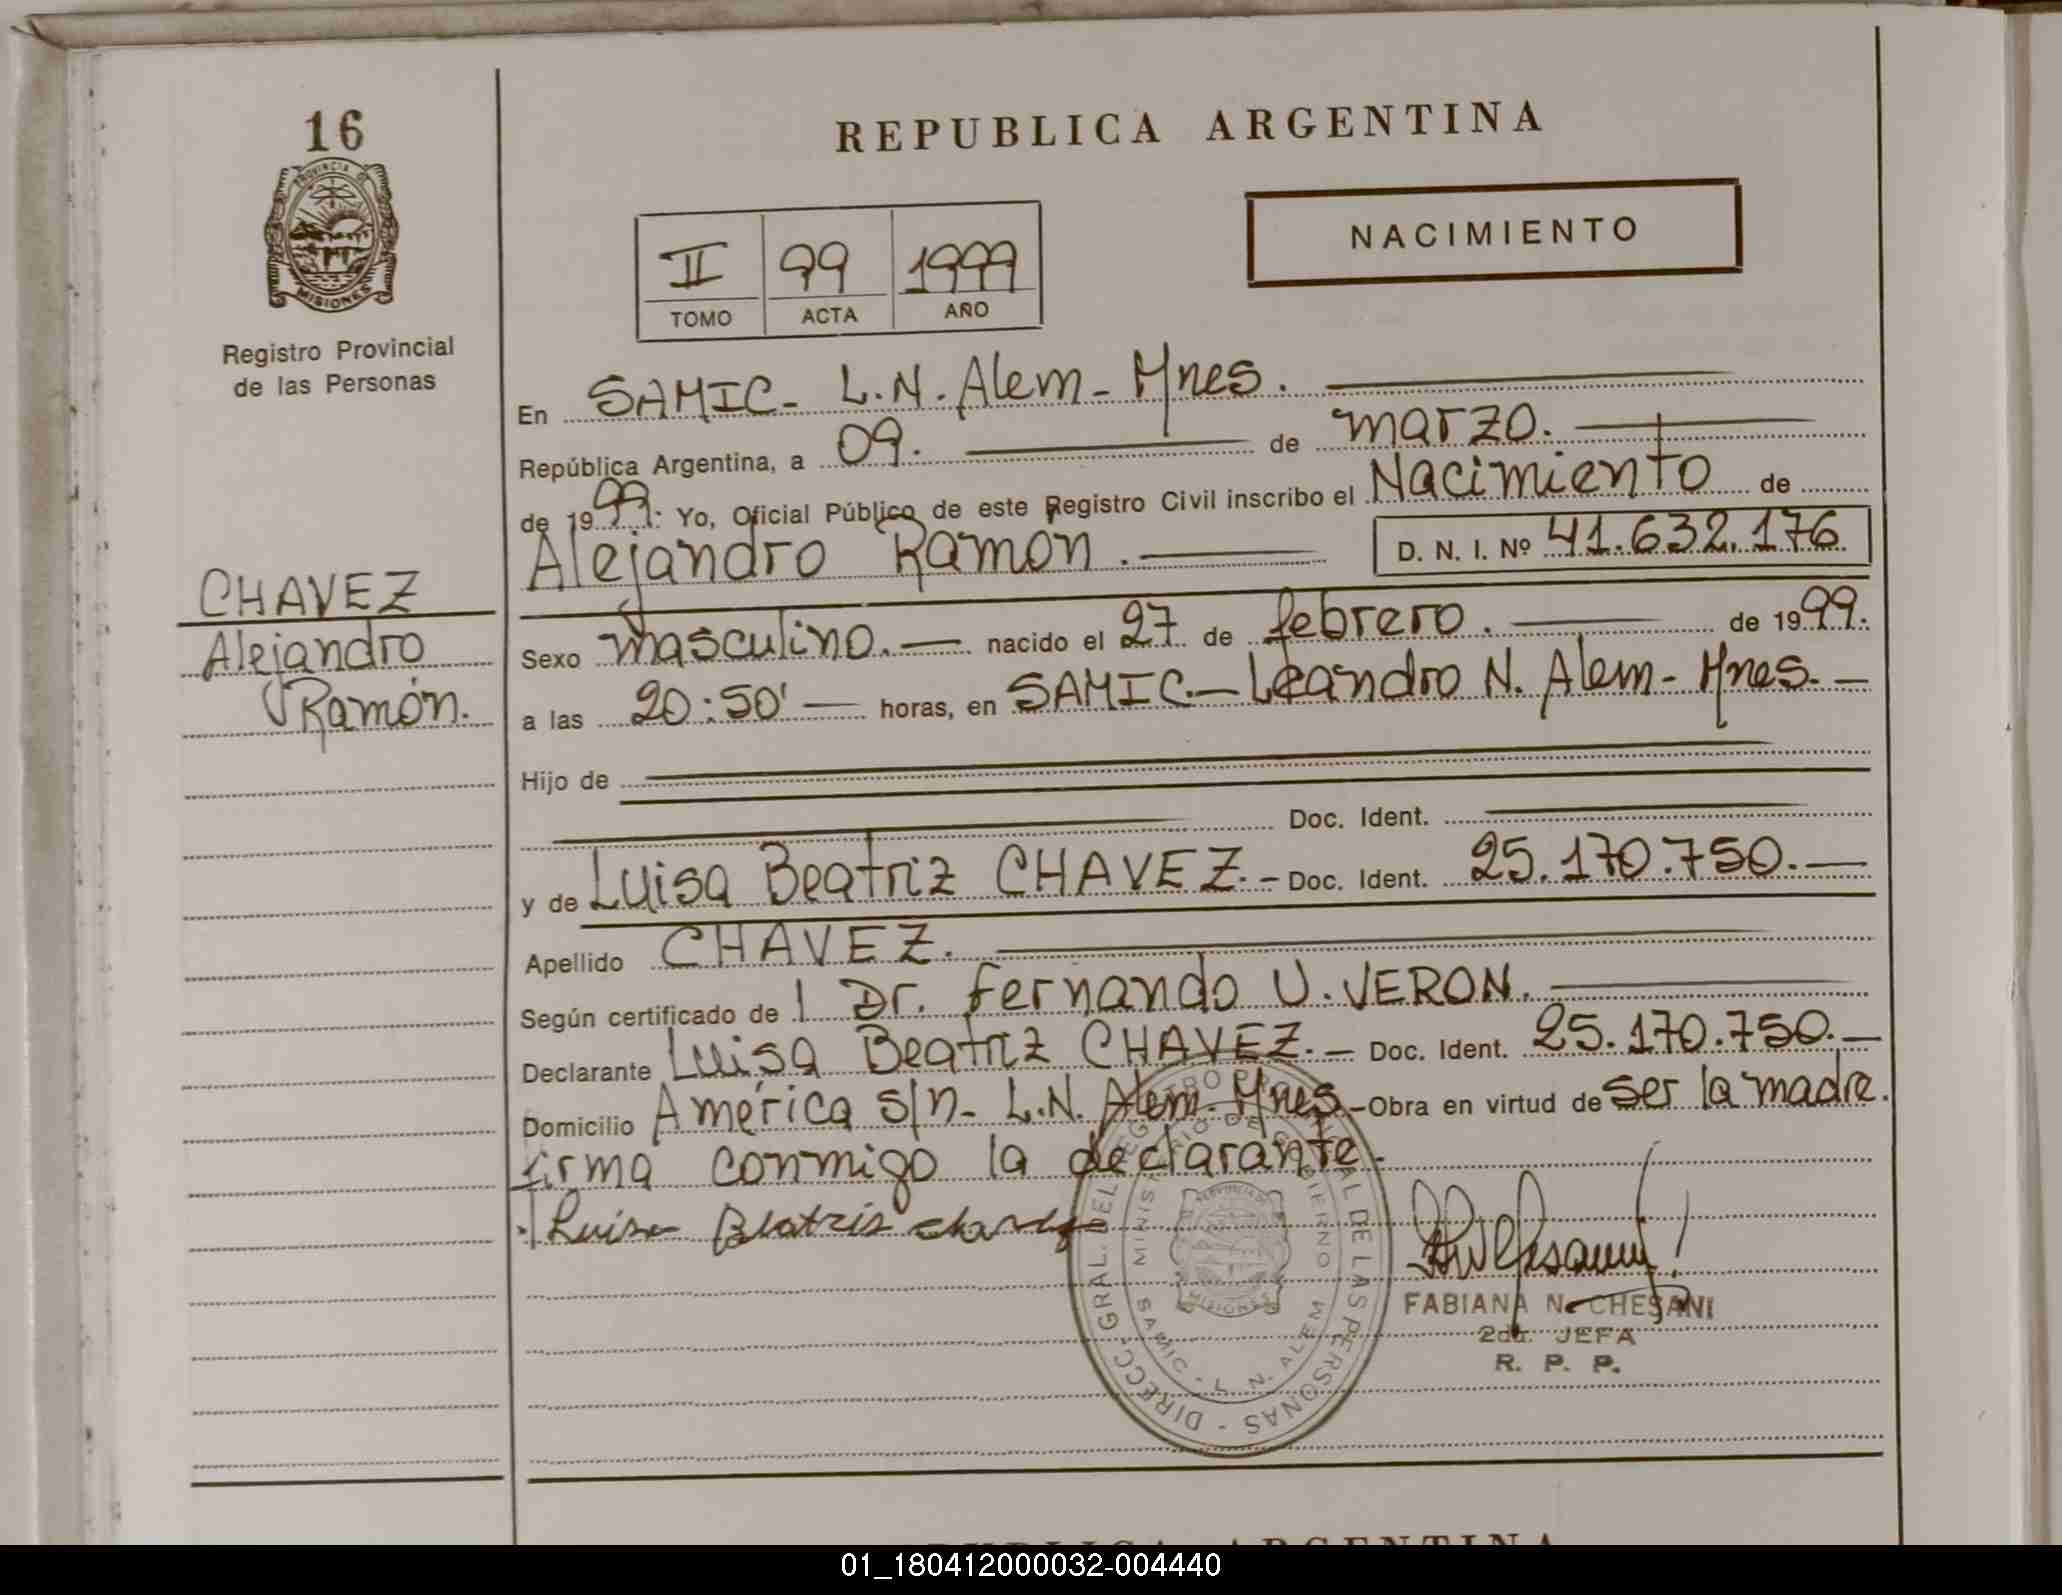 16
PROVINCIA DE
MISIONES
Registro Provincial
de las Personas
CHAVEZ
Alejandro
Ramón.
REPUBLICA ARGENTINA
NACIMIENTO
II 99 1999
TOMO ACTA AÑO
En SAMIC- L.N. Alem- Mnes.
República Argentina, a 09. de marzo.
de 1999: Yo, Oficial Público de este Registro Civil inscribo el Nacimiento de
Alejandro Ramón. D. N. I. Nº 41.632.176
Sexo masculino.— nacido el 27 de febrero. de 1999.
a las 20:50' — horas, en SAMIC.— Leandro N. Alem- Mnes.—
Hijo de
Doc. Ident.
y de Luisa Beatriz CHAVEZ.- Doc. Ident. 25.170.750.—
Apellido CHAVEZ.
Según certificado de l Dr. Fernando U. VERON.
Declarante Luisa Beatriz CHAVEZ.— Doc. Ident. 25.170.750.—
Domicilio América s/n- L.N. Alem- Mnes.- Obra en virtud de ser la madre.
firma conmigo la declarante.
Luisa Beatris chavez
DIRECC. GRAL. DEL REGISTRO PROVINCIAL DE LAS PERSONAS -
MINISTERIO DE GOBIERNO
SAMIC - L. N. ALEM
PROVINCIA DE
MISIONES
FABIANA N. CHESANI
2da. JEFA
R. P. P.
REPUBLICA ARGENTINA
01_180412000032-004440